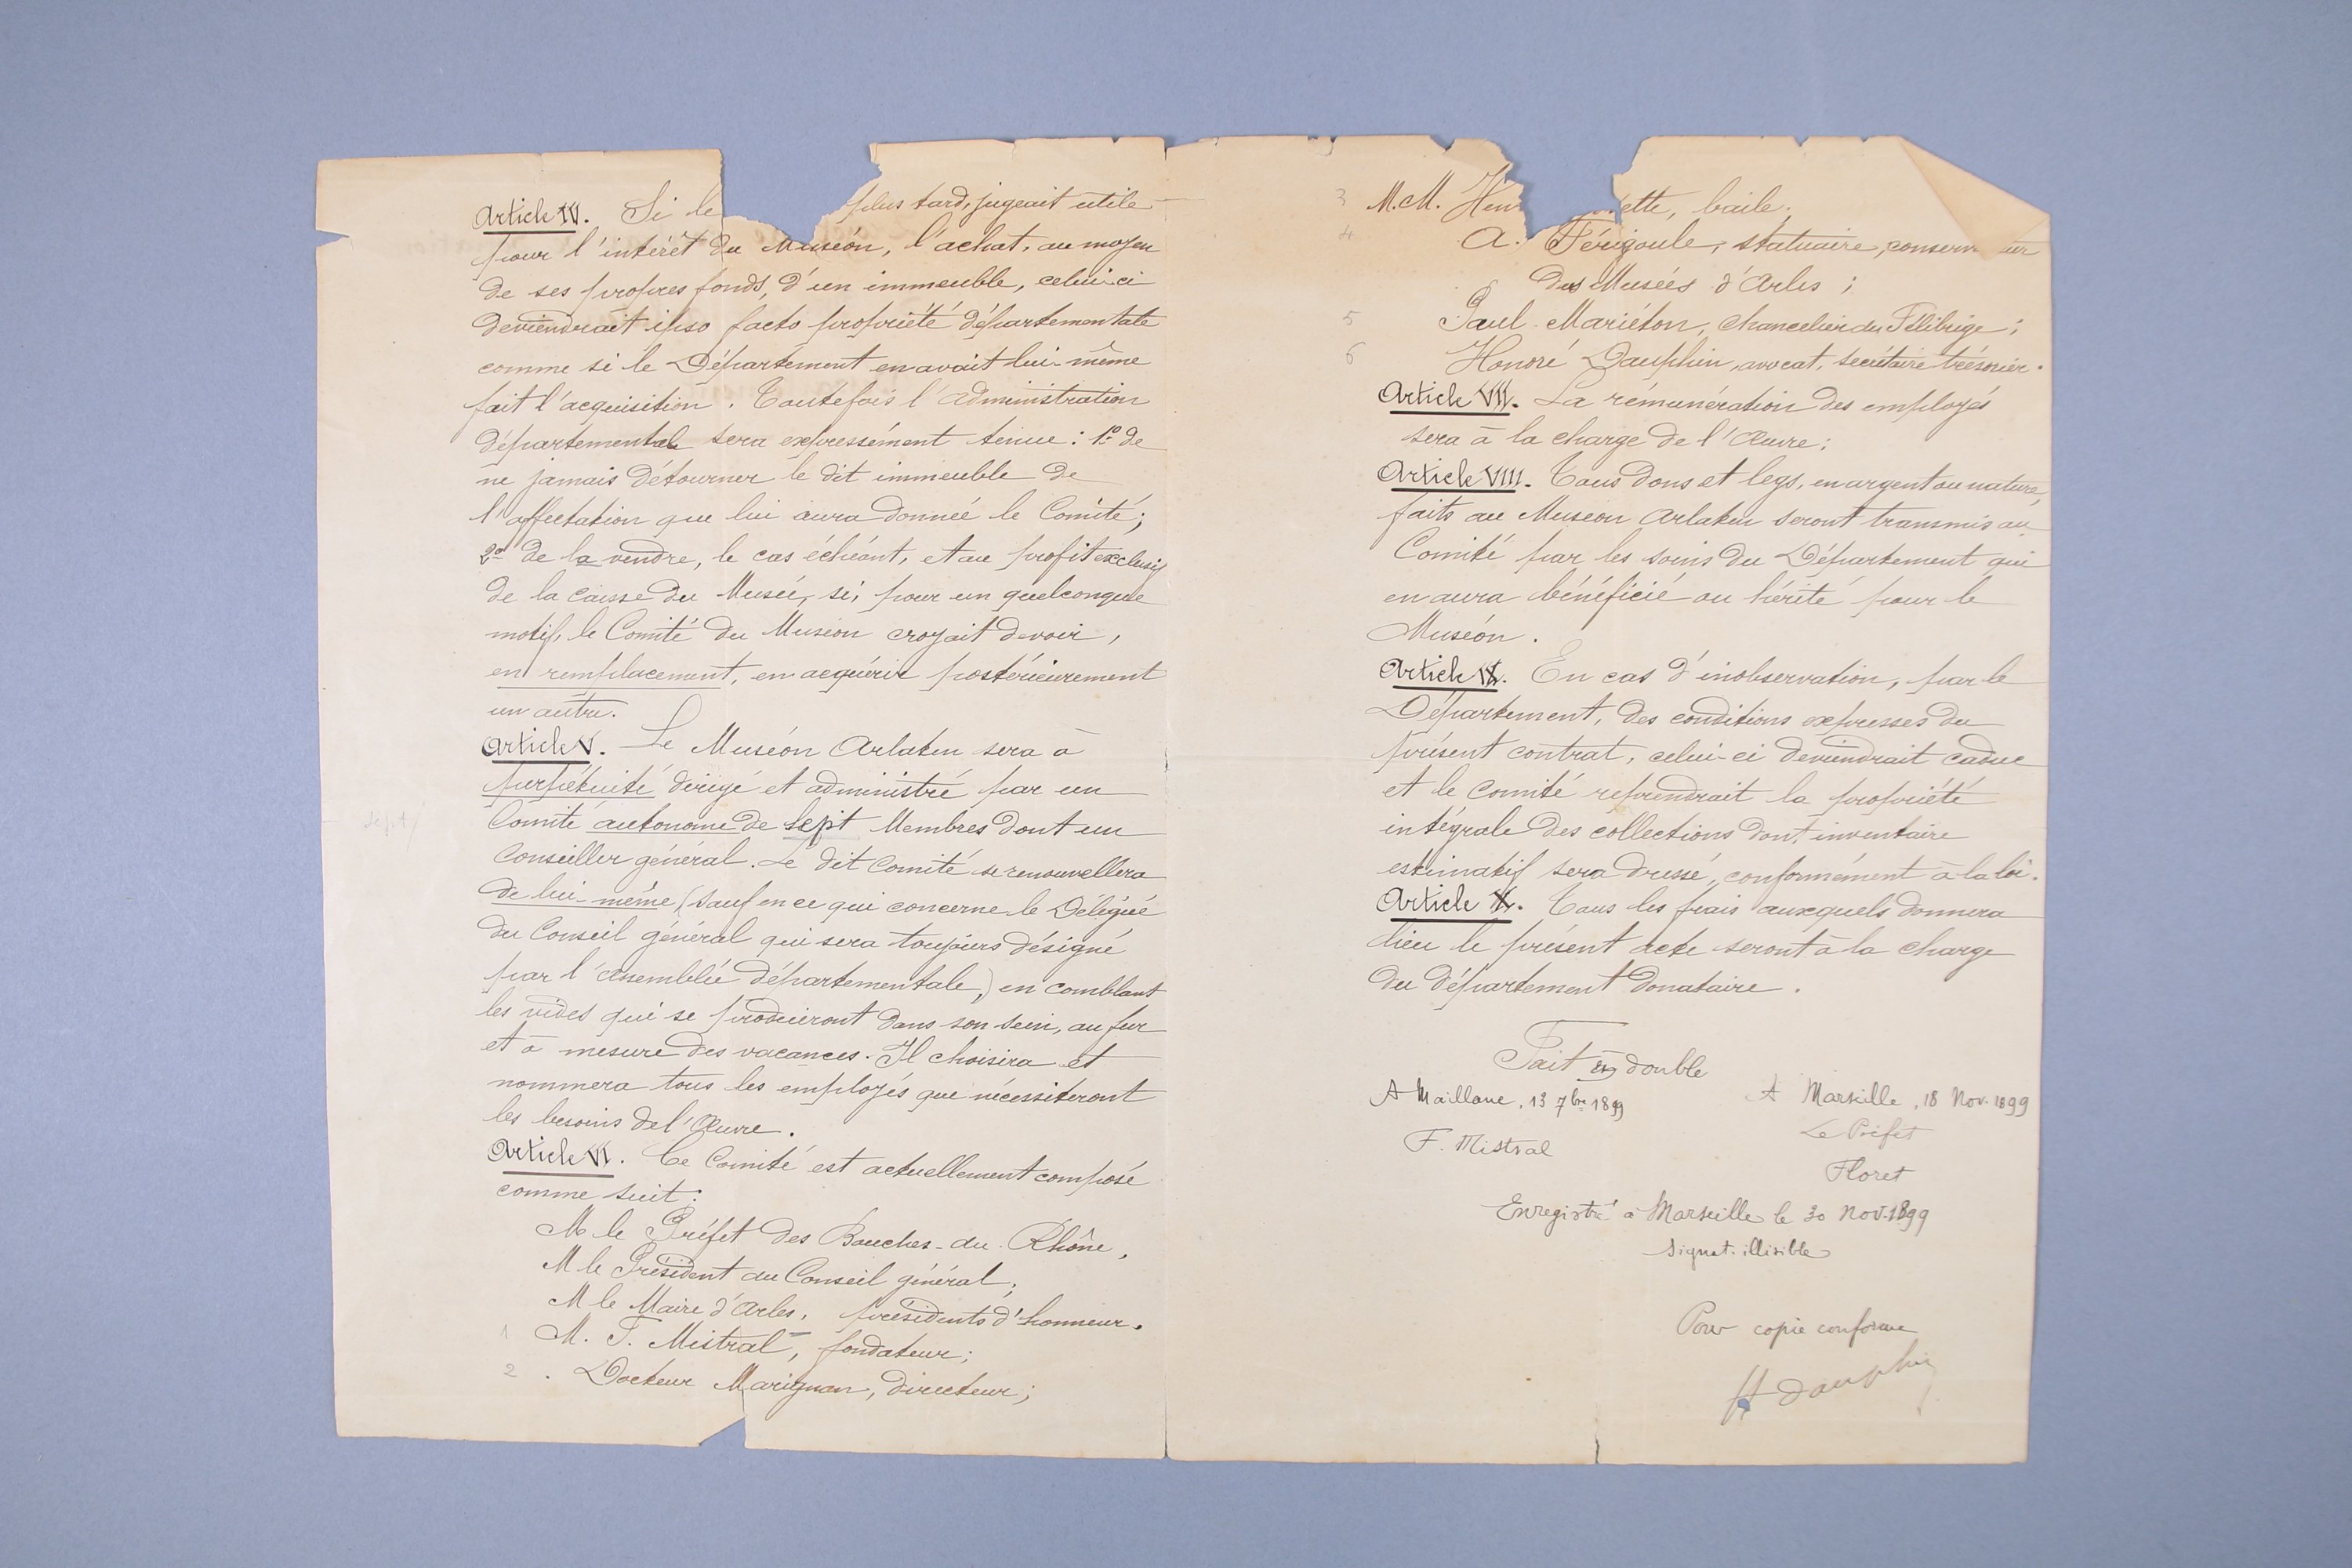 Article IV. Si le plus tard, jugeait utile
pour l'intérêt du Muséon, l'achat, au moyen
de ses propres fonds, d'un immeuble, celui-ci
deviendrait ipso facto propriété départementale
comme si le Département en avait lui-même
fait l'acquisition. Toutefois l'administration
départementale sera expressément tenue : 1º de
ne jamais détourner le dit immeuble de
l'affectation que lui aura donnée le Comité ;
2º de la vendre, le cas échéant, et au profit exclusif
de la caisse du Musée, si, pour un quelconque
motif, le Comité du Muséon croyait devoir,
en remplacement, en acquérir postérieurement
un autre.
Article V. Le Muséon Arlaten sera à
perpétuité dirigé et administré par un
sept/
Comité autonome de sept Membres dont un
Conseiller général. Le dit Comité se renouvellera
de lui-même (sauf en ce qui concerne le Délégué
du Conseil général qui sera toujours désigné
par l'assemblée départementale,) en comblant
les vides qui se produiront dans son sein, au fur
et à mesure des vacances. Il choisira et
nommera tous les employés que nécessiteront
les besoins de l'Œuvre.
Article VI. Ce Comité est actuellement composé
comme suit :
M le Préfet des Bouches-du-Rhône,
M le Président du Conseil général ;
M le Maire d'Arles, présidents d'honneur.
1 M. F. Mistral, fondateur ;
2 . Docteur Marignan, directeur ;
3 M.M. Hen ette, baile ;
4 A. Férigoule, statuaire, conserv eur
des Musées d'Arles ;
5 Paul Mariéton, Chancelier du Félibrige ;
6 Honoré Dauphin, avocat, secrétaire trésorier.
Article VII. La rémunération des employés
sera à la charge de l'Œuvre ;
Article VIII. Tous dons et legs, en argent ou nature,
faits au Museon Arlaten seront transmis au
Comité par les soins du Département qui
en aura bénéficié ou hérité pour le
Muséon.
Article IX. En cas d'inobservation, par le
Département, des conditions expresses du
présent contrat, celui-ci deviendrait caduc
et le Comité reprendrait la propriété
intégrale des collections dont inventaire
estimatif sera dressé, conformément à la loi.
Article X. Tous les frais auxquels donnera
lieu le présent acte seront à la charge
du département donataire.
Fait en double
A Maillane, 13 7bre 1899
A Marseille, 18 Nov. 1899
Le Préfet
F. Mistral
Floret
Enregistré à Marseille le 30 Nov. 1899
Signat. illisible
Pour copie conforme
H Dauphin